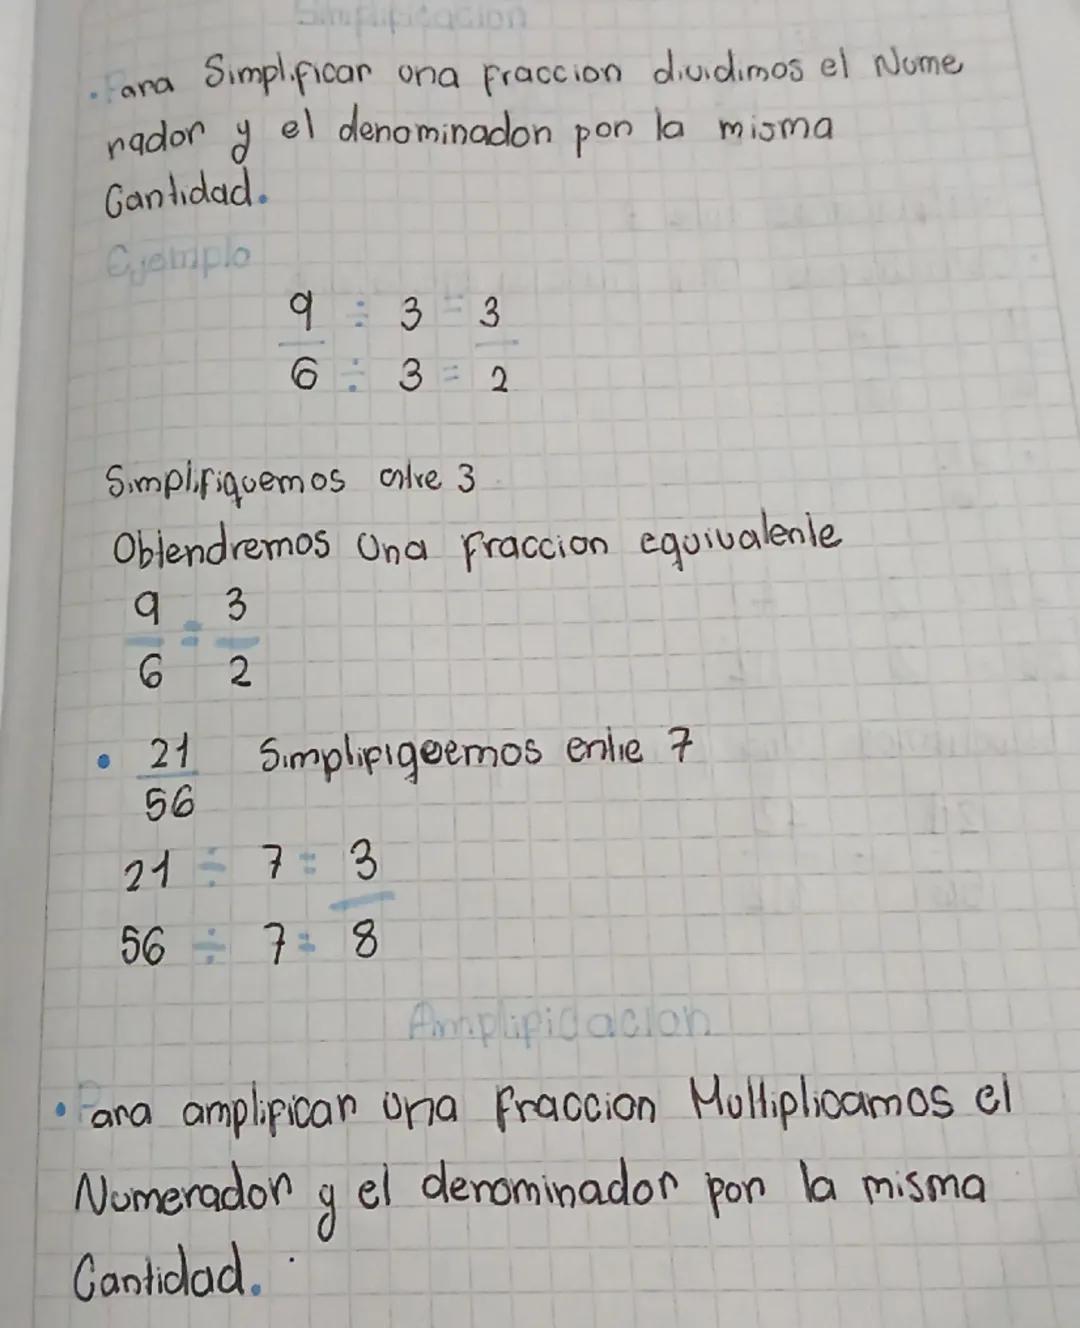 Simplificacion
. Para Simplificar una fraccion dividimos el Nume
rador y el denominador por la misma
Cantidad.
Ejemplo
9 ÷ 3 = 3
6 ÷ 3 = 2
Simplifiquemos entre 3
Obtendremos una fraccion equivalente
9 = 3
6 2
• 21 Simplifiqeemos entre 7
56
21 ÷ 7 = 3
56 ÷ 7 = 8
Amplificacion
• Para amplificar una fraccion Multiplicamos el
Numerador y el denominador por la misma
Cantidad.